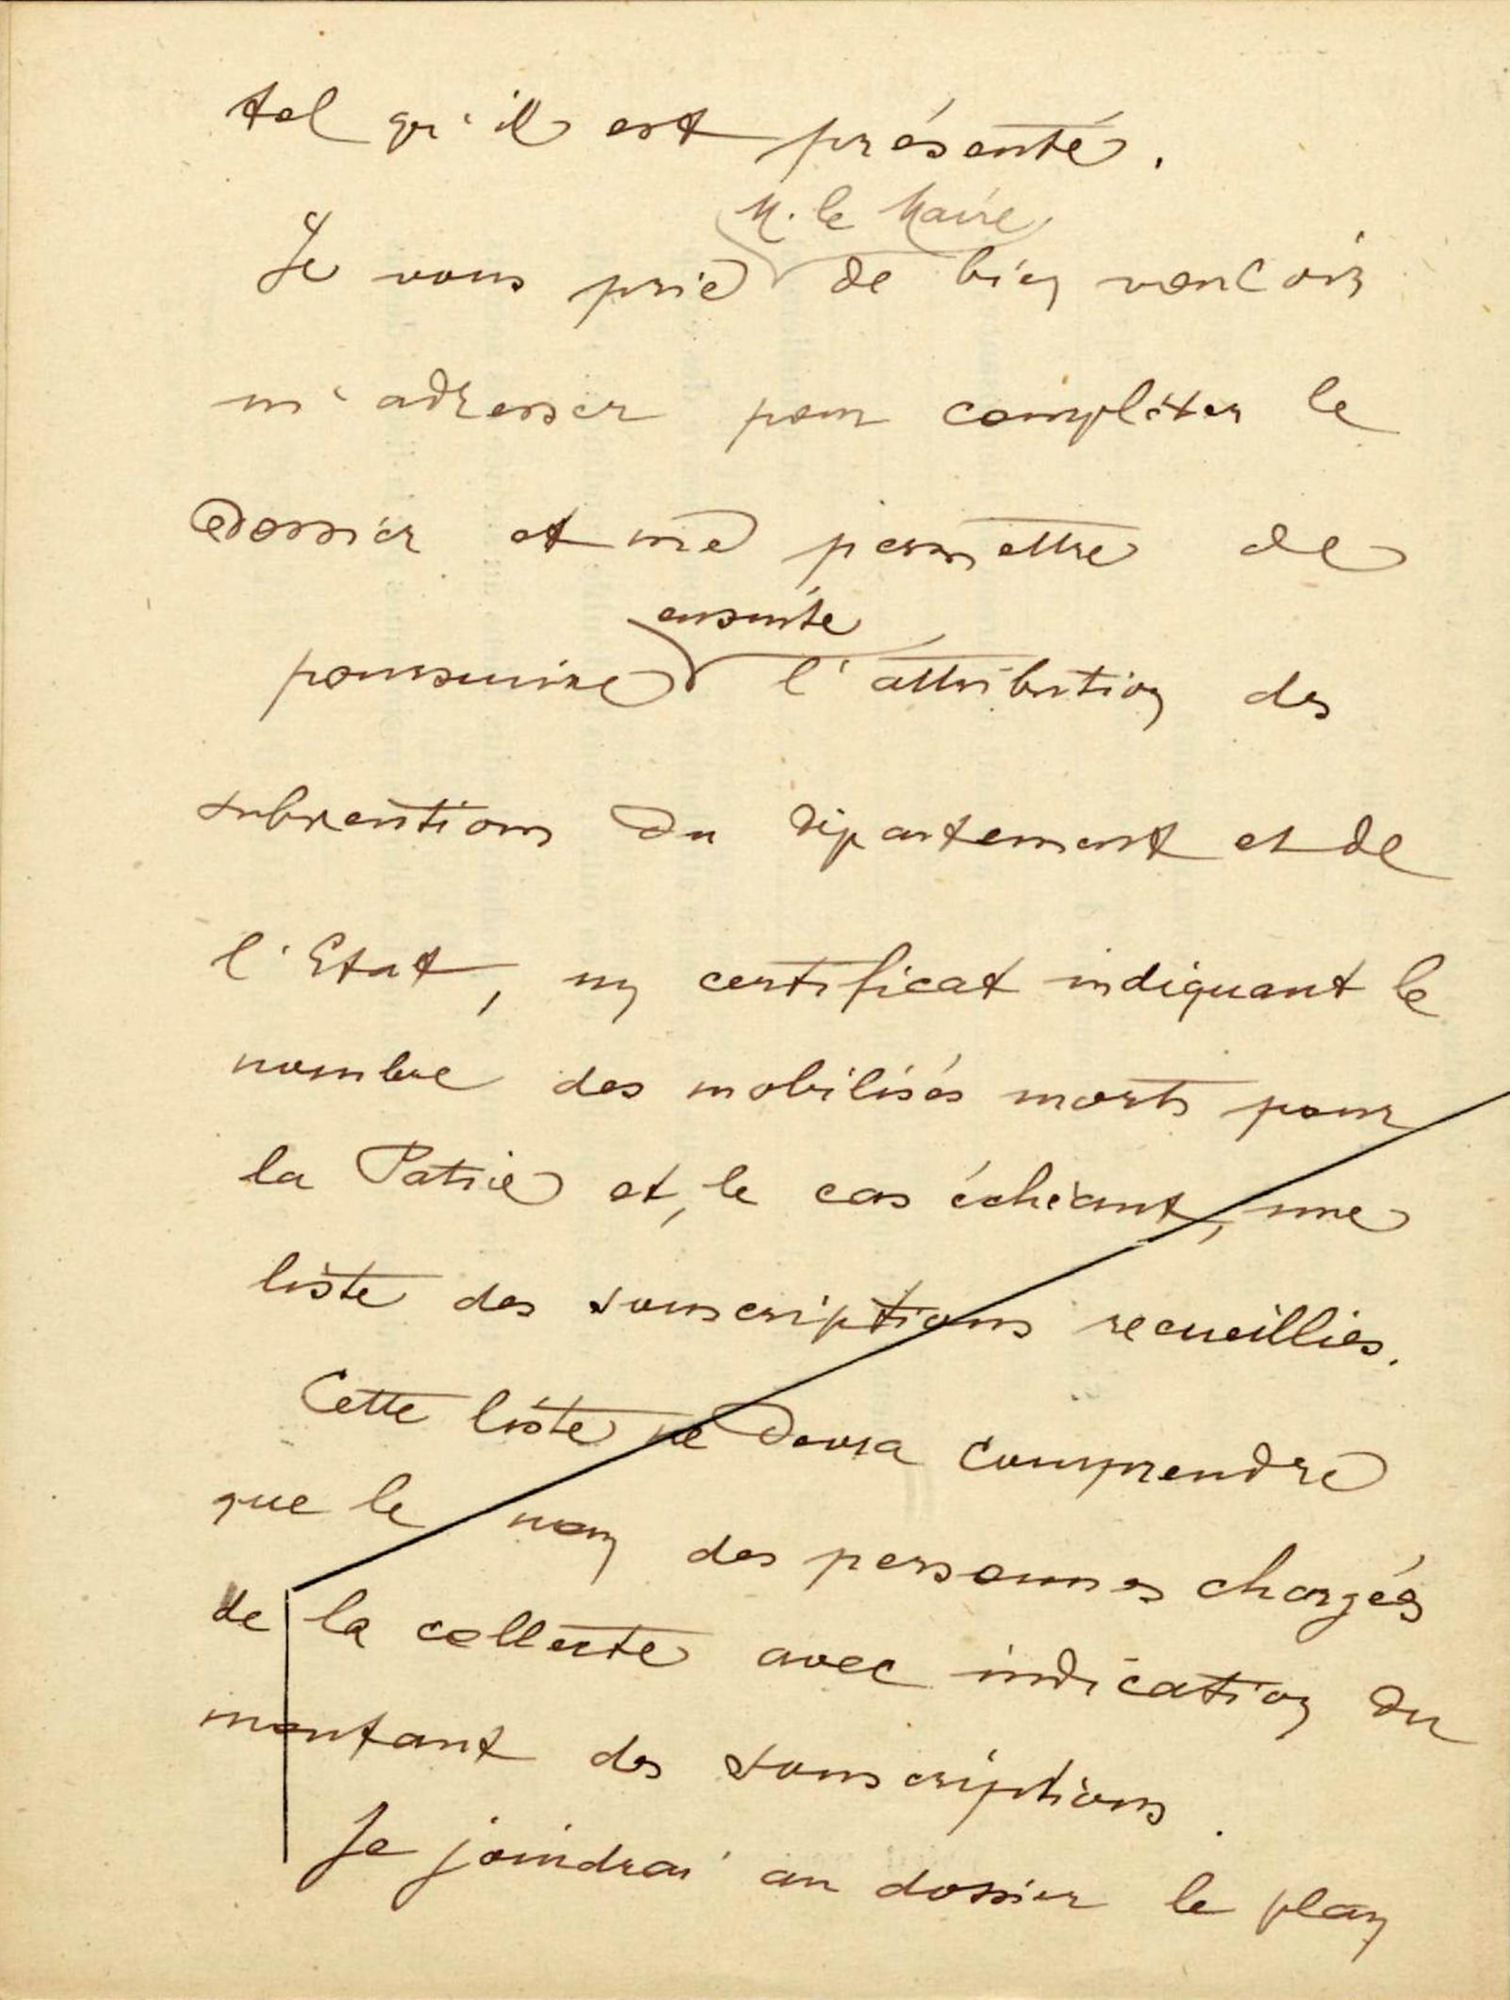 tel qu'il est présenté.
M. le Maire
Je vous prie de bien vouloir
m'adresser pour compléter le
dossier et me permettre de
ensuite
poursuivre l'attribution des
subventions du département et de
l'Etat, un certificat indiquant le
nombre des mobilisés morts pour
la Patrie et, le cas échéant, une
liste des souscriptions recueillies.
Cette liste ne devra comprendre
que le nom des personnes chargés
de la collecte avec indication du
montant des souscriptions.
Je joindrai au dossier le plan